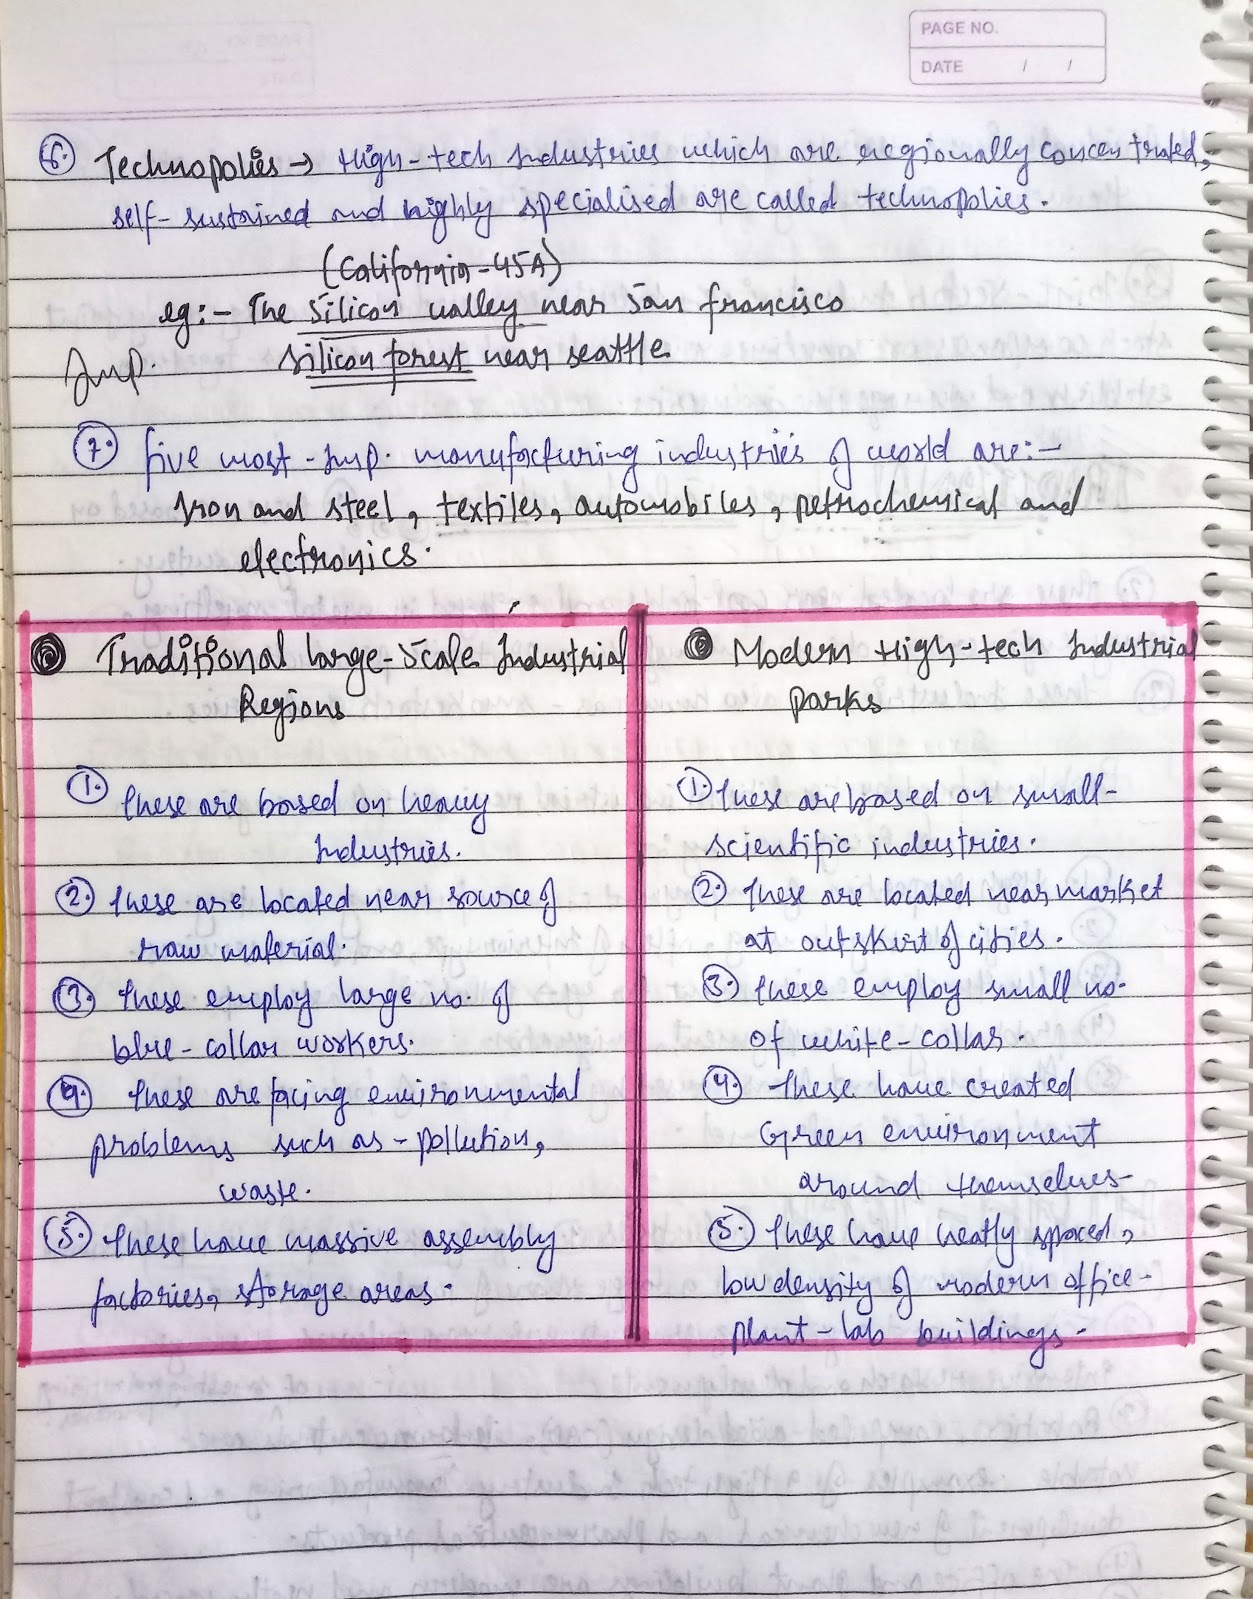 PAGE NO.
DATE / /
6. Technopolies → High-tech Industries which are regionally concentrated,
self-sustained and highly specialised are called technopolies.
(California-USA)
eg:- The Silicon valley near San francisco
Imp. Silicon forest near seattle
7. five most-Imp. manufacturing industries of world are:-
Iron and steel, textiles, automobiles, petrochemical and
electronics.
Traditional large-Scale Industrial
Regions
1. These are based on heavy
Industries.
2. These are located near source of
raw material.
3. These employ large no. of
blue-collar workers.
4. These are facing environmental
problems such as - pollution,
waste.
5. These have massive assembly
factories, storage areas.
Modern High-tech Industrial
Parks
1. These are based on small-
scientific industries.
2. These are located near market
at outskirt of cities.
3. These employ small no.
of white-collar.
4. These have created
Green environment
around themselves-
5. These have neatly spaced,
low density of modern office-
plant-lab buildings.